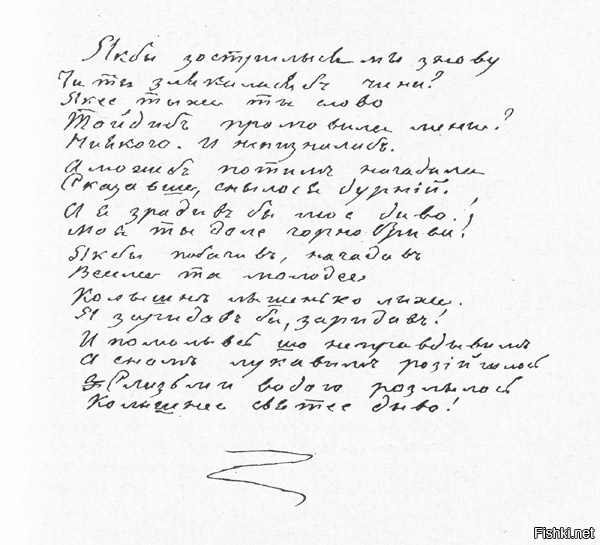 Якбы зострилыся мы знову
Чи ты злякаласябъ чи ни?
Якее тихее ты слово
Тойдибъ промовила мени?
Ниякого. И непизналабъ.
А можебъ потимъ нагадала
Сказавше, снылося дурній.
А я зрадивъ бы мое диво!
Моя ты доле чорнобрива!
Якбы побачивъ, нагадавъ
Веселее та молодее
Колышнє лышенько лихее.
Я заридавъ бы, заридавъ!
И помолывсь що неправдивымъ
А сномъ лукавымъ розійшлось
Слизьми водою розлилось
Колышнее святее диво!
Fishki.net